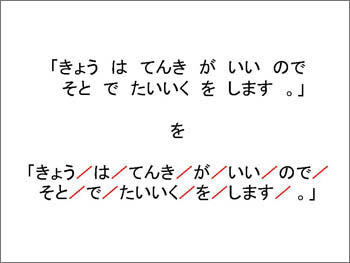 「きょう は てんき が いい ので
そと で たいいく を します 。」
を
「きょう／は／てんき／が／いい／ので／
そと／で／たいいく／を／します／ 。」